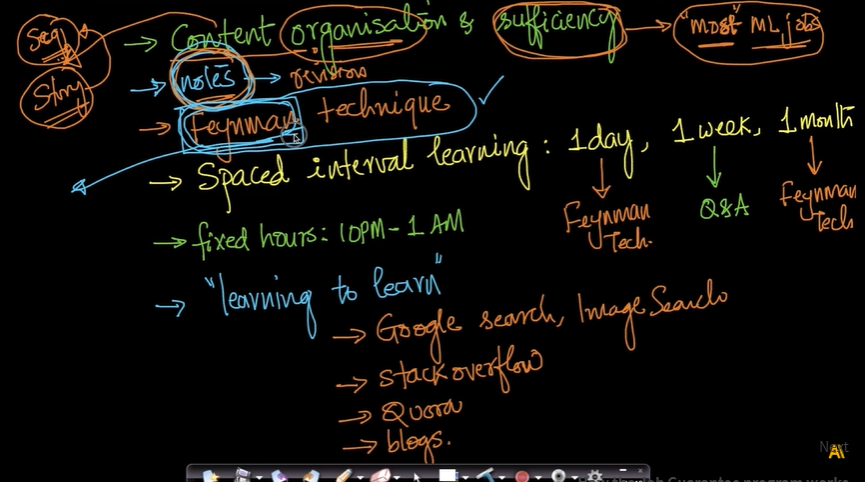 Seq
Story
→ Content organisation & sufficiency → "most" ML jobs
→ notes → revision
→ Feynman technique ✓
→ Spaced interval learning: 1 day, 1 week, 1 month
Feynman Tech.
Q&A
Feynman Tech
→ fixed hours: 10PM - 1 AM
→ "learning to learn"
→ Google search, Image Search
→ stackoverflow
→ Quora
→ blogs.
Next